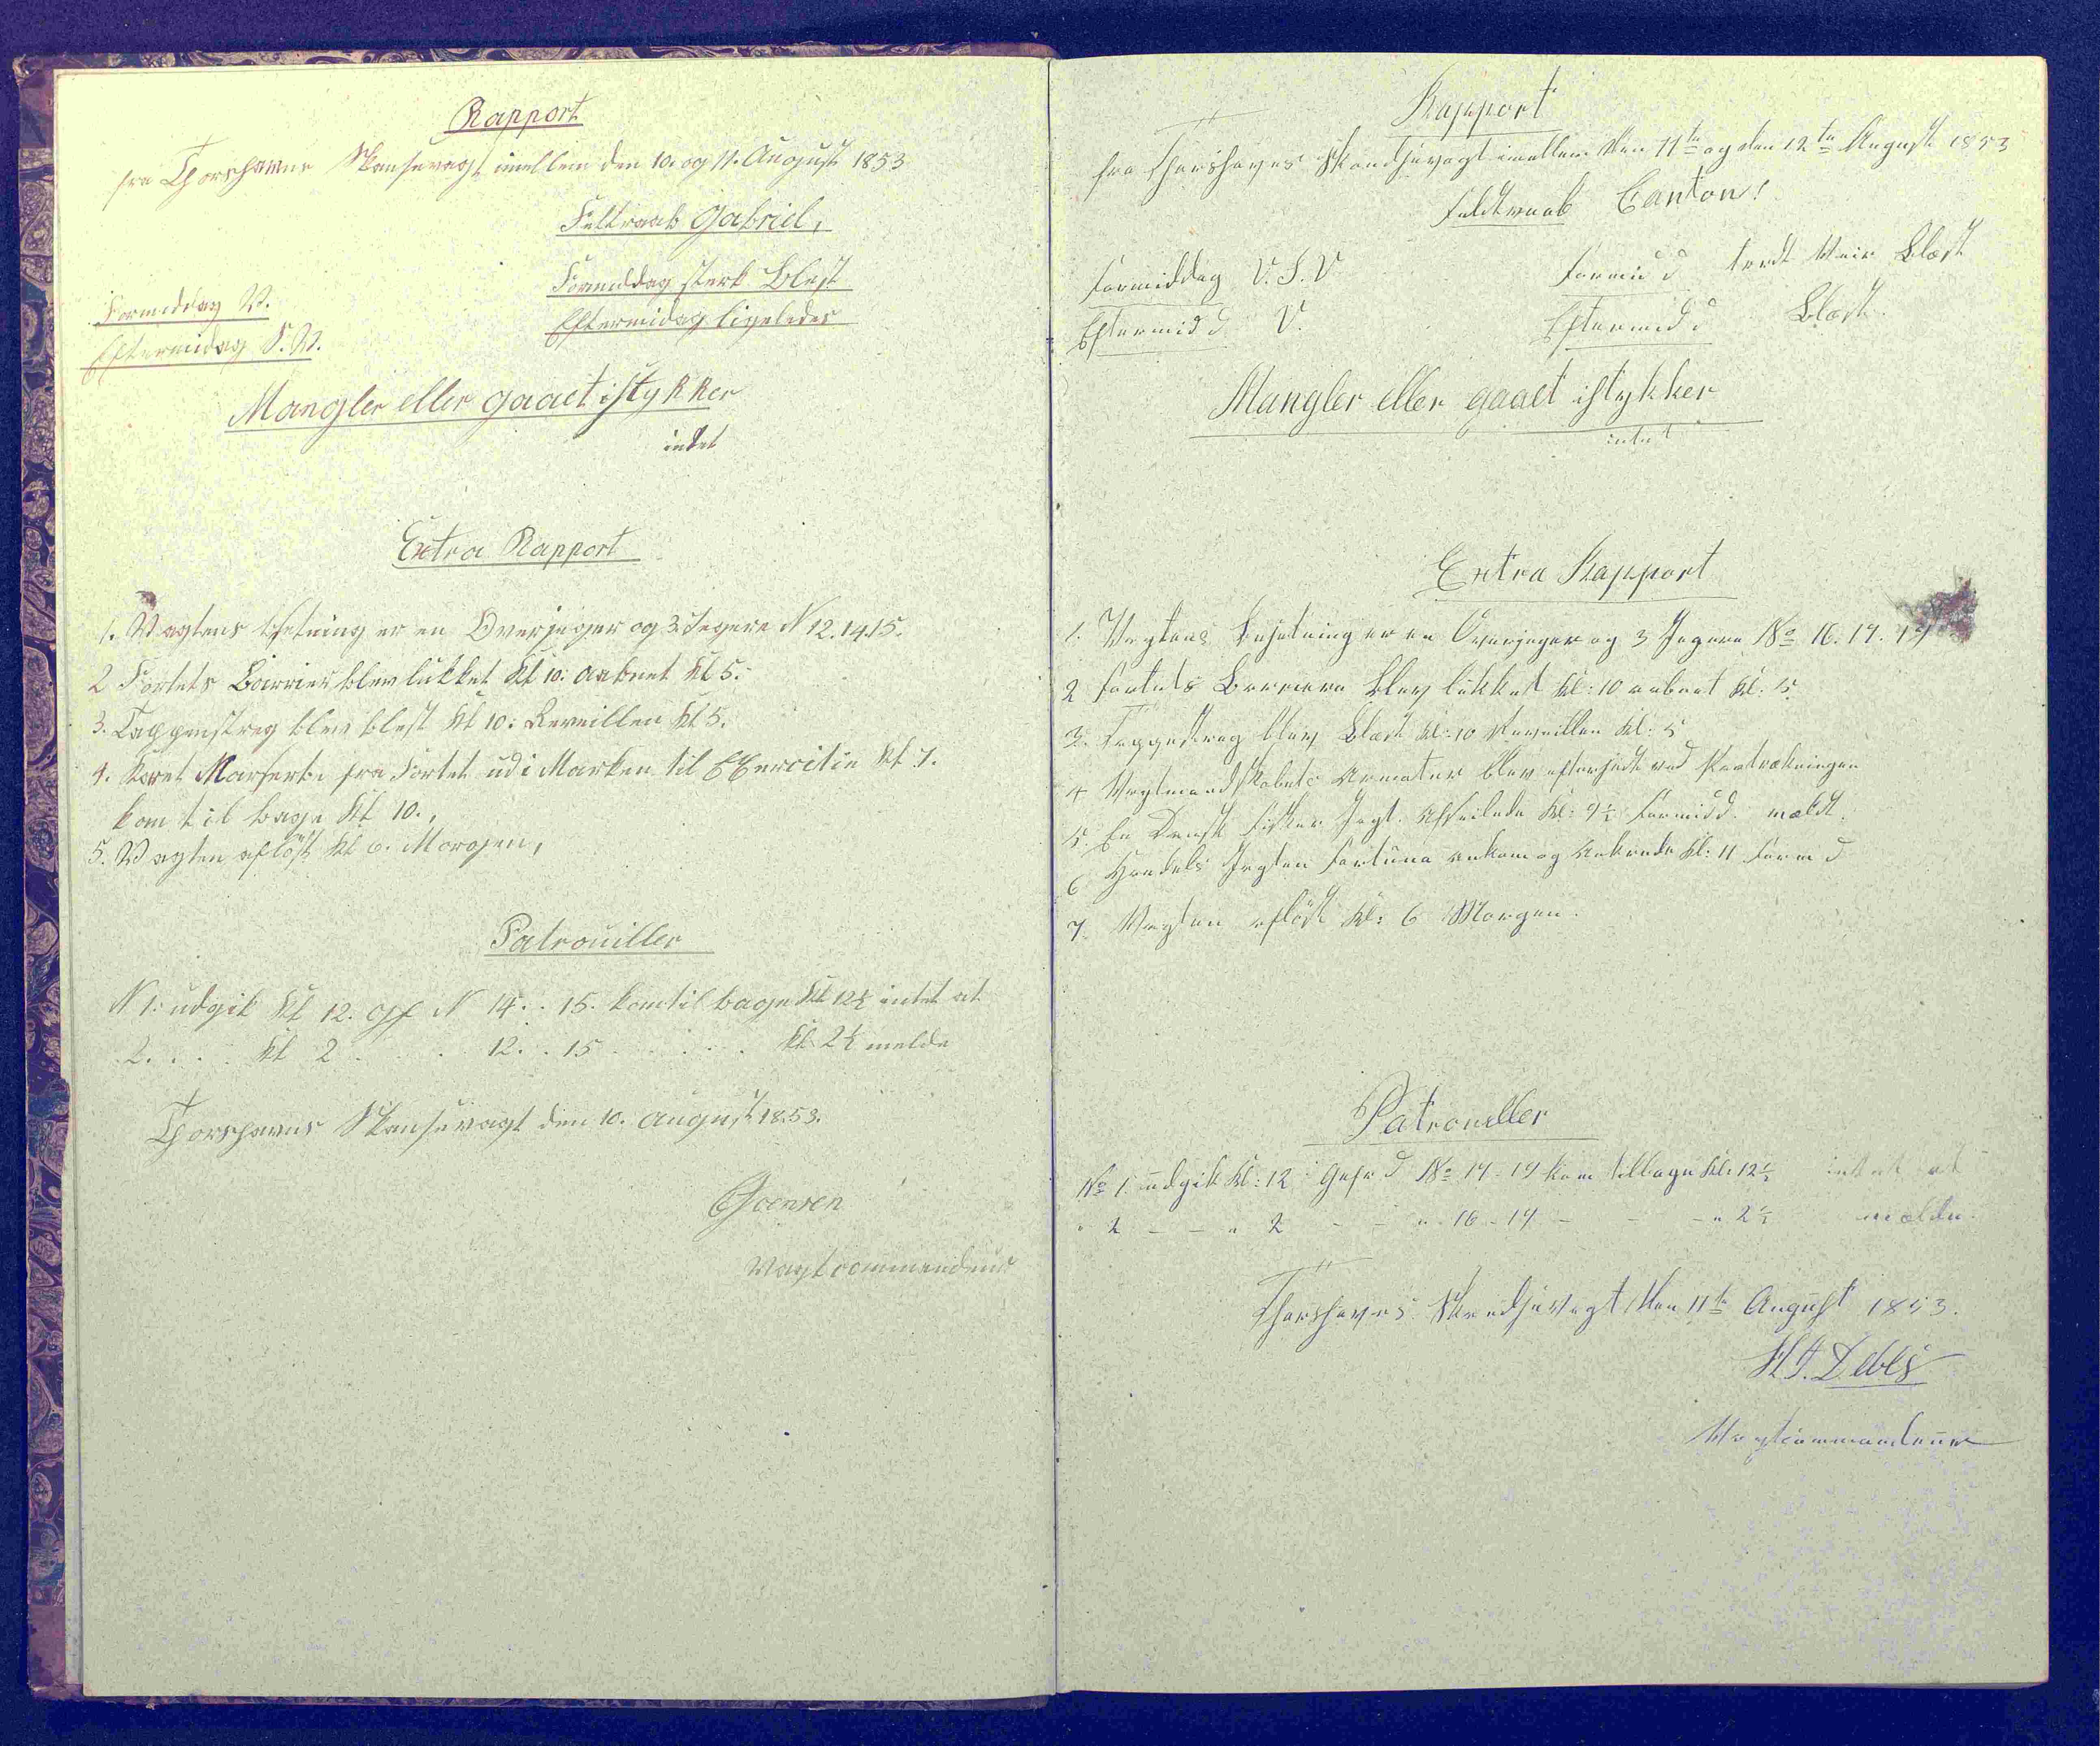 Rapport
fra Thorshavns Skansevagt imellem den 10. og 11. August 1853
Feltraab Gabriel,
Formiddag V. Formiddag sterk Blest
Eftermidag S.V. Eftermidag ligeledes
Mangler eller gaaet istykker
intet
Extra Rapport
1. Vagtens besetning er en Overjeger og 3 Jegere N 12. 14. 15.
2 Fortets Barrier blev lukket Kl 10: aabnet Kl 5.
3. Tappenstreg blev blest Kl 10: Reveillen Kl 5.
4. fra Fortet ud i Marken til Exercitie Kl 7.
kom til bage Kl 10.,
5. Vagten aflöst Kl 6. Morgen,
Patrouiller
N 1: udgik Kl 12. Gf N 14. . 15. kom til bage Kl 12½ intet at
. 2. . . . Kl 2 . . . . 12. . 15 . . . . . Kl 2½ melde
Thorshavns Skansevagt den 10. august 1853.
Joensen
Vagtcommendeur
Rapport
fra Thorshavns Skandsevagt imellem den 11te og den 12te August 1853
Feldtraab Canton!
Formiddag V.S.V Formid d tördt Veir Blæst
Eftermid d V. Eftermid d Blæst.
Mangler eller gaaet istykker
intet
Extra Rapport
1. Vagtens Besetning er en Overjeger og 3 Jegere No 16. 17. 19
2 Fortets Barriere blev lukket Kl: 10 aabnet Kl: 5.
3. Tappestreg blev Blæst Kl: 10 Reveillen Kl: 5
4 Vagtmandskabets Armatur blev efterseedt ved
5. En Dansk Fisker Jagt. Afseilede Kl: 9½ Formidd. mældt.
6 Handels Jagten Fortuna ankom og Ankrede Kl: 11 Form d
7. Vagten aflöst Kl: 6 Morgen.
Patrouiller
No 1. udgik Kl: 12 Gefr d No 17 - 19 kom tilbage Kl: 12½ intet at
" 2 - - " 2 - - " 16 - 19 - - - " 2½ mælde.
Thorshavns Skandsevagt den 11te August 1853.
H. J. Debes
Vagtcommandeur